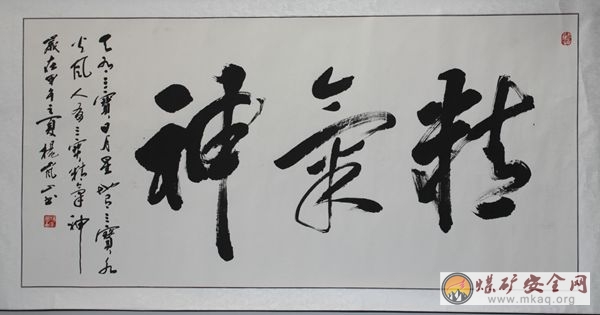 精氣神
天有三寶日月星地有三寶水
火风人有三宝精氣神
歲在甲午之夏楊 山书
煤矿安全网
www.mkaq.org